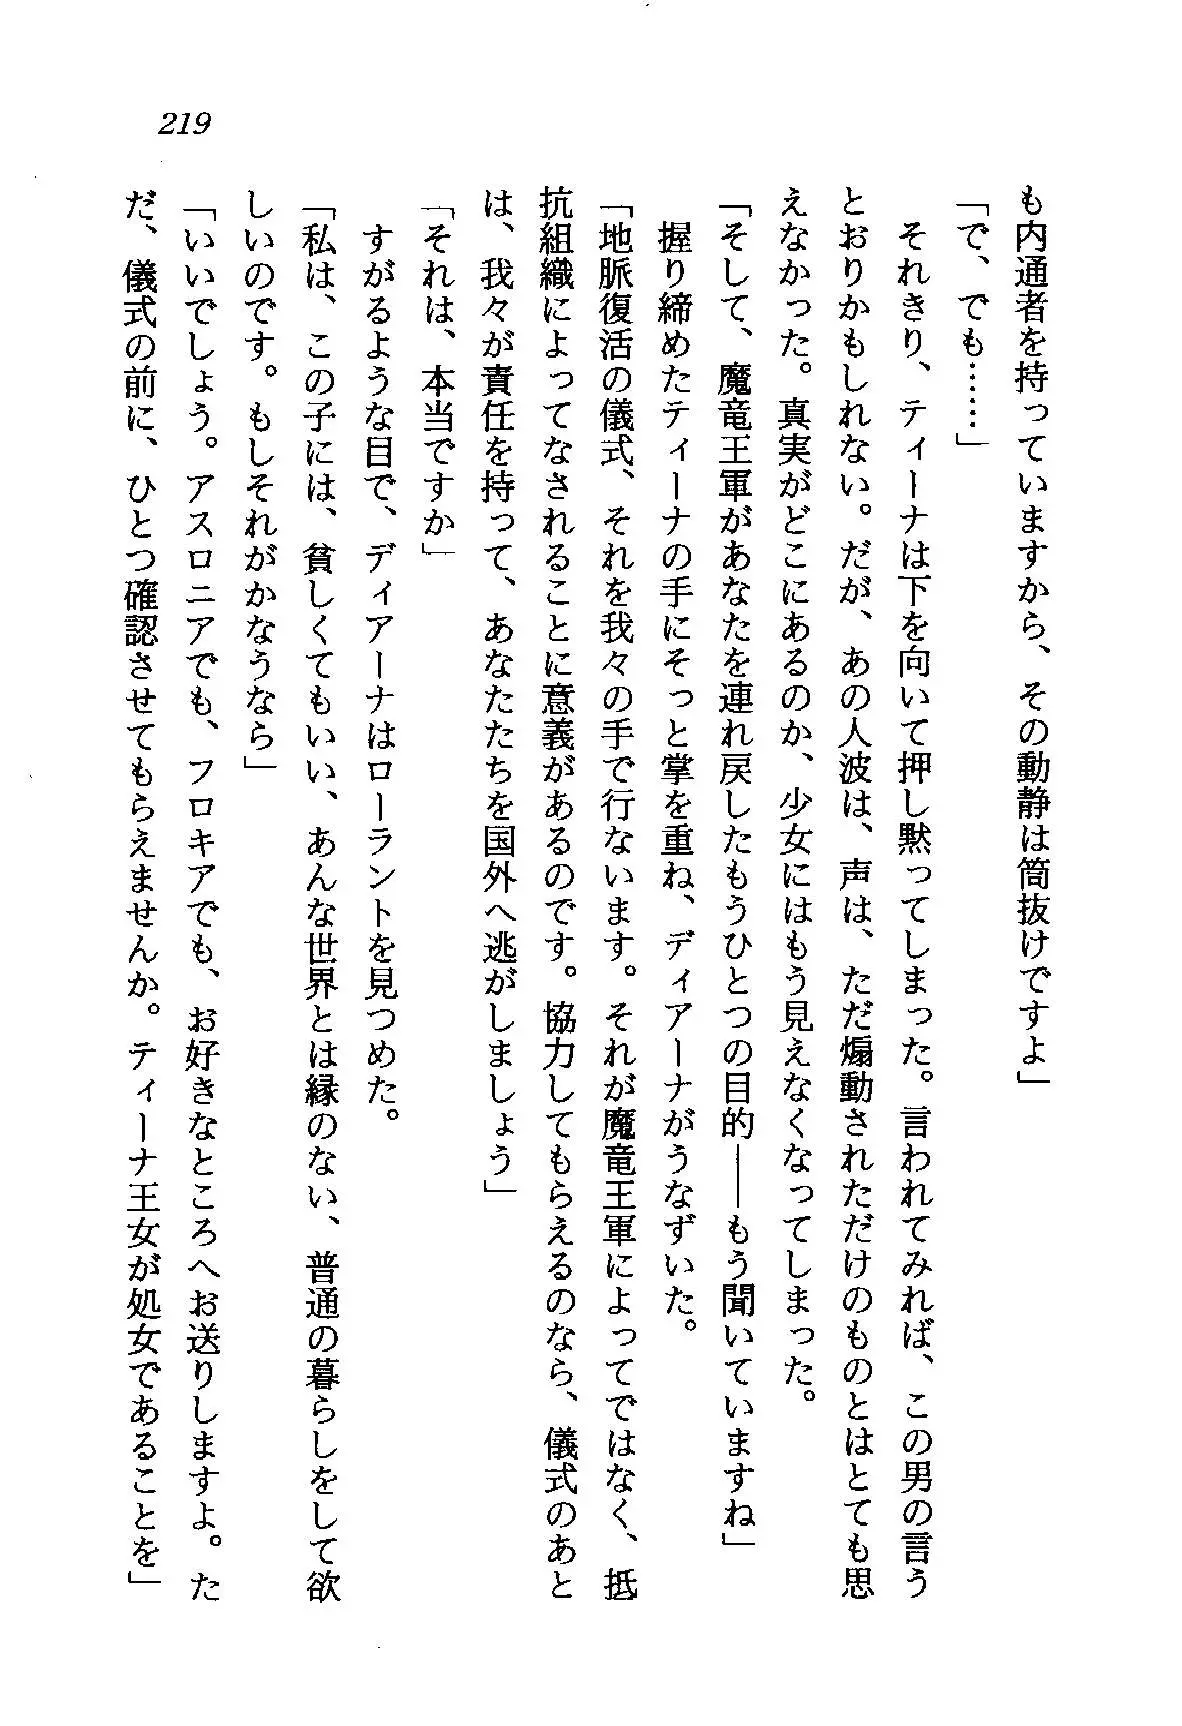 219
も内通者を持っていますから、その動静は筒抜けですよ」
「で、でも……」
　それきり、ティーナは下を向いて押し黙ってしまった。言われてみれば、この男の言う
とおりかもしれない。だが、あの人波は、声は、ただ煽動されただけのものとはとても思
えなかった。真実がどこにあるのか、少女にはもう見えなくなってしまった。
「そして、魔竜王軍があなたを連れ戻したもうひとつの目的――もう聞いていますね」
　握り締めたティーナの手にそっと掌を重ね、ディアーナがうなずいた。
「地脈復活の儀式、それを我々の手で行ないます。それが魔竜王軍によってではなく、抵
抗組織によってなされることに意義があるのです。協力してもらえるのなら、儀式のあと
は、我々が責任を持って、あなたたちを国外へ逃がしましょう」
「それは、本当ですか」
　すがるような目で、ディアーナはローラントを見つめた。
「私は、この子には、貧しくてもいい、あんな世界とは縁のない、普通の暮らしをして欲
しいのです。もしそれがかなうなら」
「いいでしょう。アスロニアでも、フロキアでも、お好きなところへお送りしますよ。た
だ、儀式の前に、ひとつ確認させてもらえませんか。ティーナ王女が処女であることを」